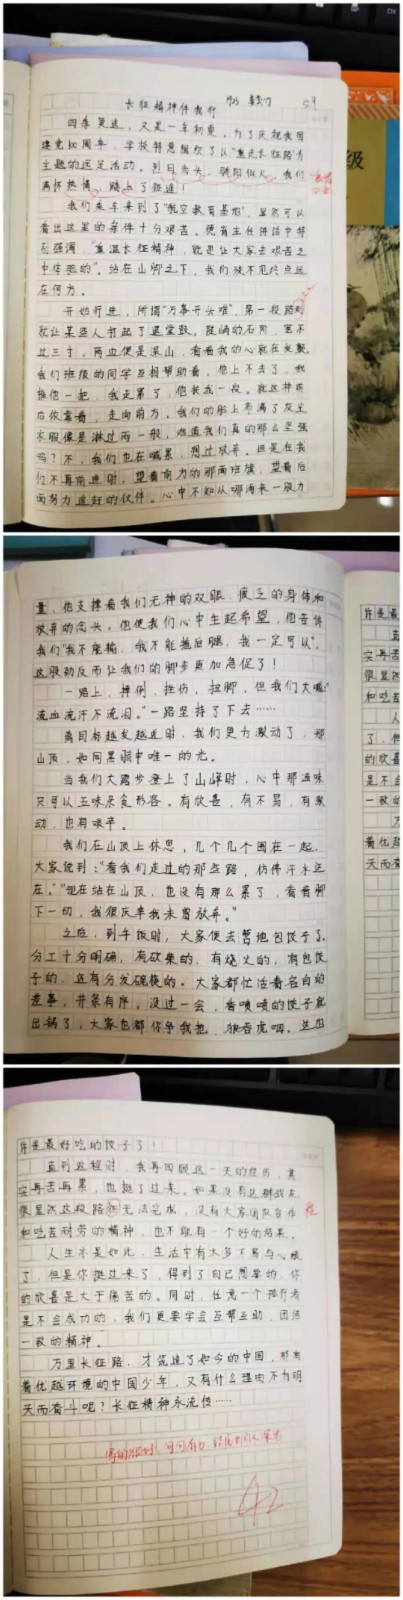 长征精神伴我行
四季更迭，又是一年初夏。为了庆祝我国
建党100周年，学校特意组织了以“重走长征路”为
主题的远足活动。烈日当头，骄阳似火，我们
满怀热情，踏上了征途！
我们乘车来到了“航空教育基地”，显然可以
看出这里的条件十分艰苦。德育主任讲话中特
别强调，“重温长征精神，就是让大家去艰苦之
中体验的”。站在山脚之下，我们望不见终点远
在何方。
开始行进，所谓“万事开头难”，第一段路
就让某些人打起了退堂鼓。陡峭的石阶，宽不
过三寸，两边便是深山，看着我的心就在发颤。
我们班级的同学互相帮助着，他上不去了，我
推他一把，我走累了，他扶我一段。就这样前
后依靠着，走向前方。我们的脸上布满了灰尘
衣服像是淋过雨一般，难道我们真的那么坚强
吗？不，我们也在喊累，想过放弃。但是在我
们不再前进时，望着前方的那面班旗，望着后
面努力追赶的伙伴。心中不知从哪涌来一股力
量，他支撑着我们无神的双眼，疲乏的身体和
放弃的念头。他使我们心中生起希望，他告诉
我们“我不能输，我不能拖后腿，我一定可以”。
这股劲反而让我们的脚步更加急促了！
一路上，摔倒，挫伤，扭脚，但我们大喊：“
流血流汗不流泪。”一路坚持了下去……
离目标越发越近时，我们更为激动了，那
山顶，如同黑洞中唯一的光。
当我们大踏步登上了山峰时，心中那滋味
只可以五味杂瓮形容。有欣喜，有不易，有激
动，也有艰辛。
我们在山顶上休息，几个几个围在一起。
大家说到：“看我们走过的那些路，仿佛汗水还
在。”“现在站在山顶，也没有那么累了，看着脚
下一切，我很庆幸我未曾放弃。”
之后，到午饭时，大家便去营地包饺子了。
分工十分明确，有砍柴的，有烧火的，有包饺
子的，还有分发碗筷的。大家都忙活着各自的
差事，井条有序。没过一会，香喷喷的饺子就
出锅了，大家也都你争我抢，狼吞虎咽。这也
许是最好吃的饺子了！
直到返程时，我再回顾这一天的经历，其
实再苦再累，也挺了过来。如果没有这群战友
很显然这段路程无法完成，没有大家团队合作
和吃苦耐劳的精神，也不能有一个好的结果。
人生亦是如此，生活中有太多不易与心酸
了，但是你挺过来了，得到了自己想要的，你
的欣喜是大于痛苦的。同时，任意一个独行者
是不会成功的，我们更要学会互帮互助，团结
一致的精神。
万里长征路，才筑造了如今的中国，那有
着优越环境的中国少年，又有什么理由不为明
天而奋斗呢？长征精神永流传……
42